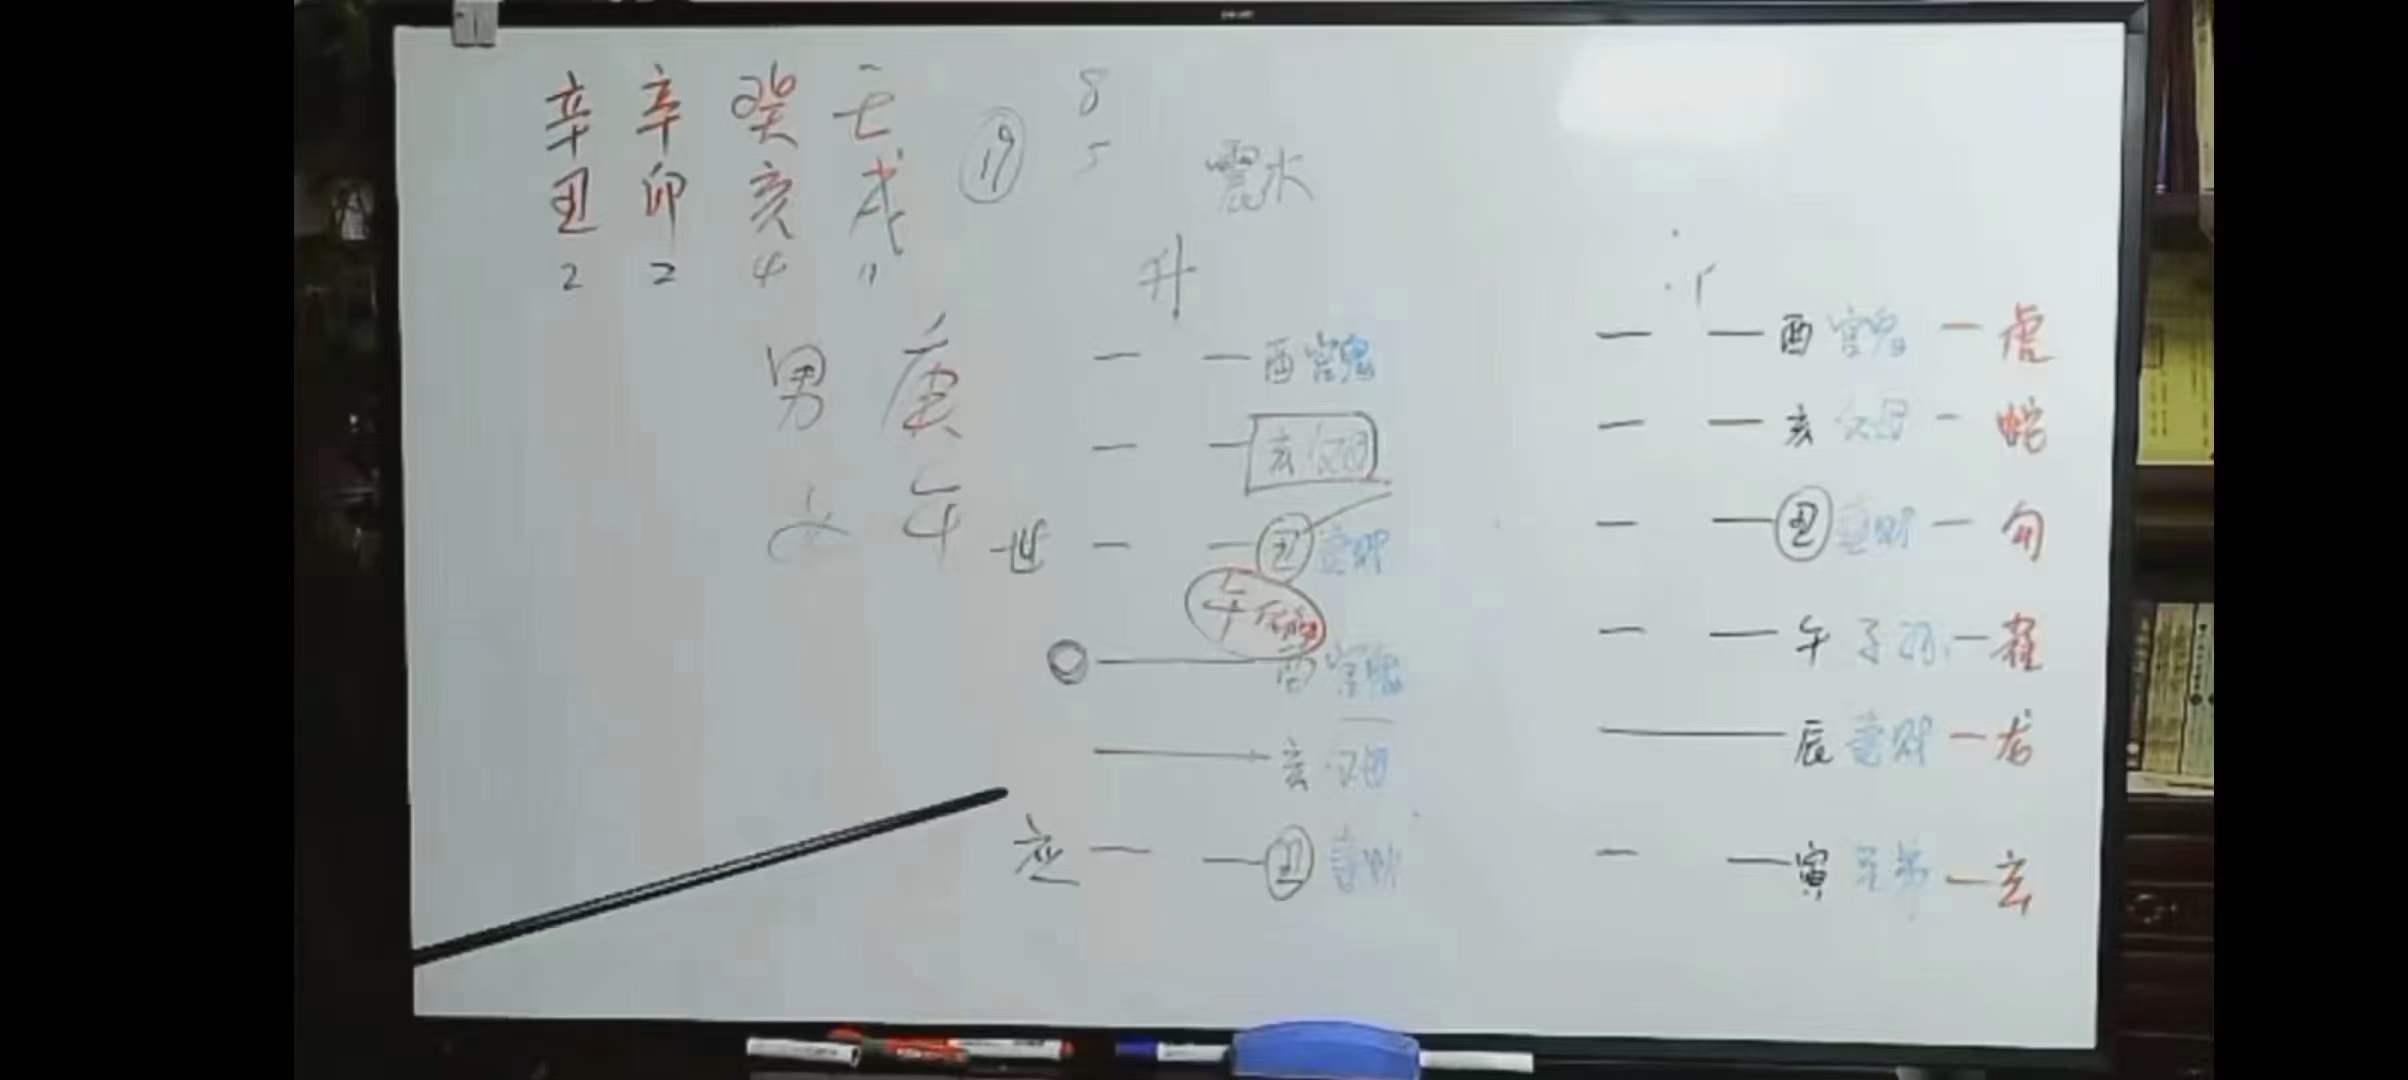 辛 辛 癸 壬
丑 卯 亥 戌
2 2 4 11
19
8
5
震木
男 庚
午
升
酉 官鬼
亥 父母
世 丑 妻财
午
酉 官鬼
亥 父母
应 丑 妻财
酉 官鬼 一 虎
亥 父母 一 蛇
丑 妻财 一 勾
午 子孙 一 雀
辰 妻财 一 龙
寅 兄弟 一 玄